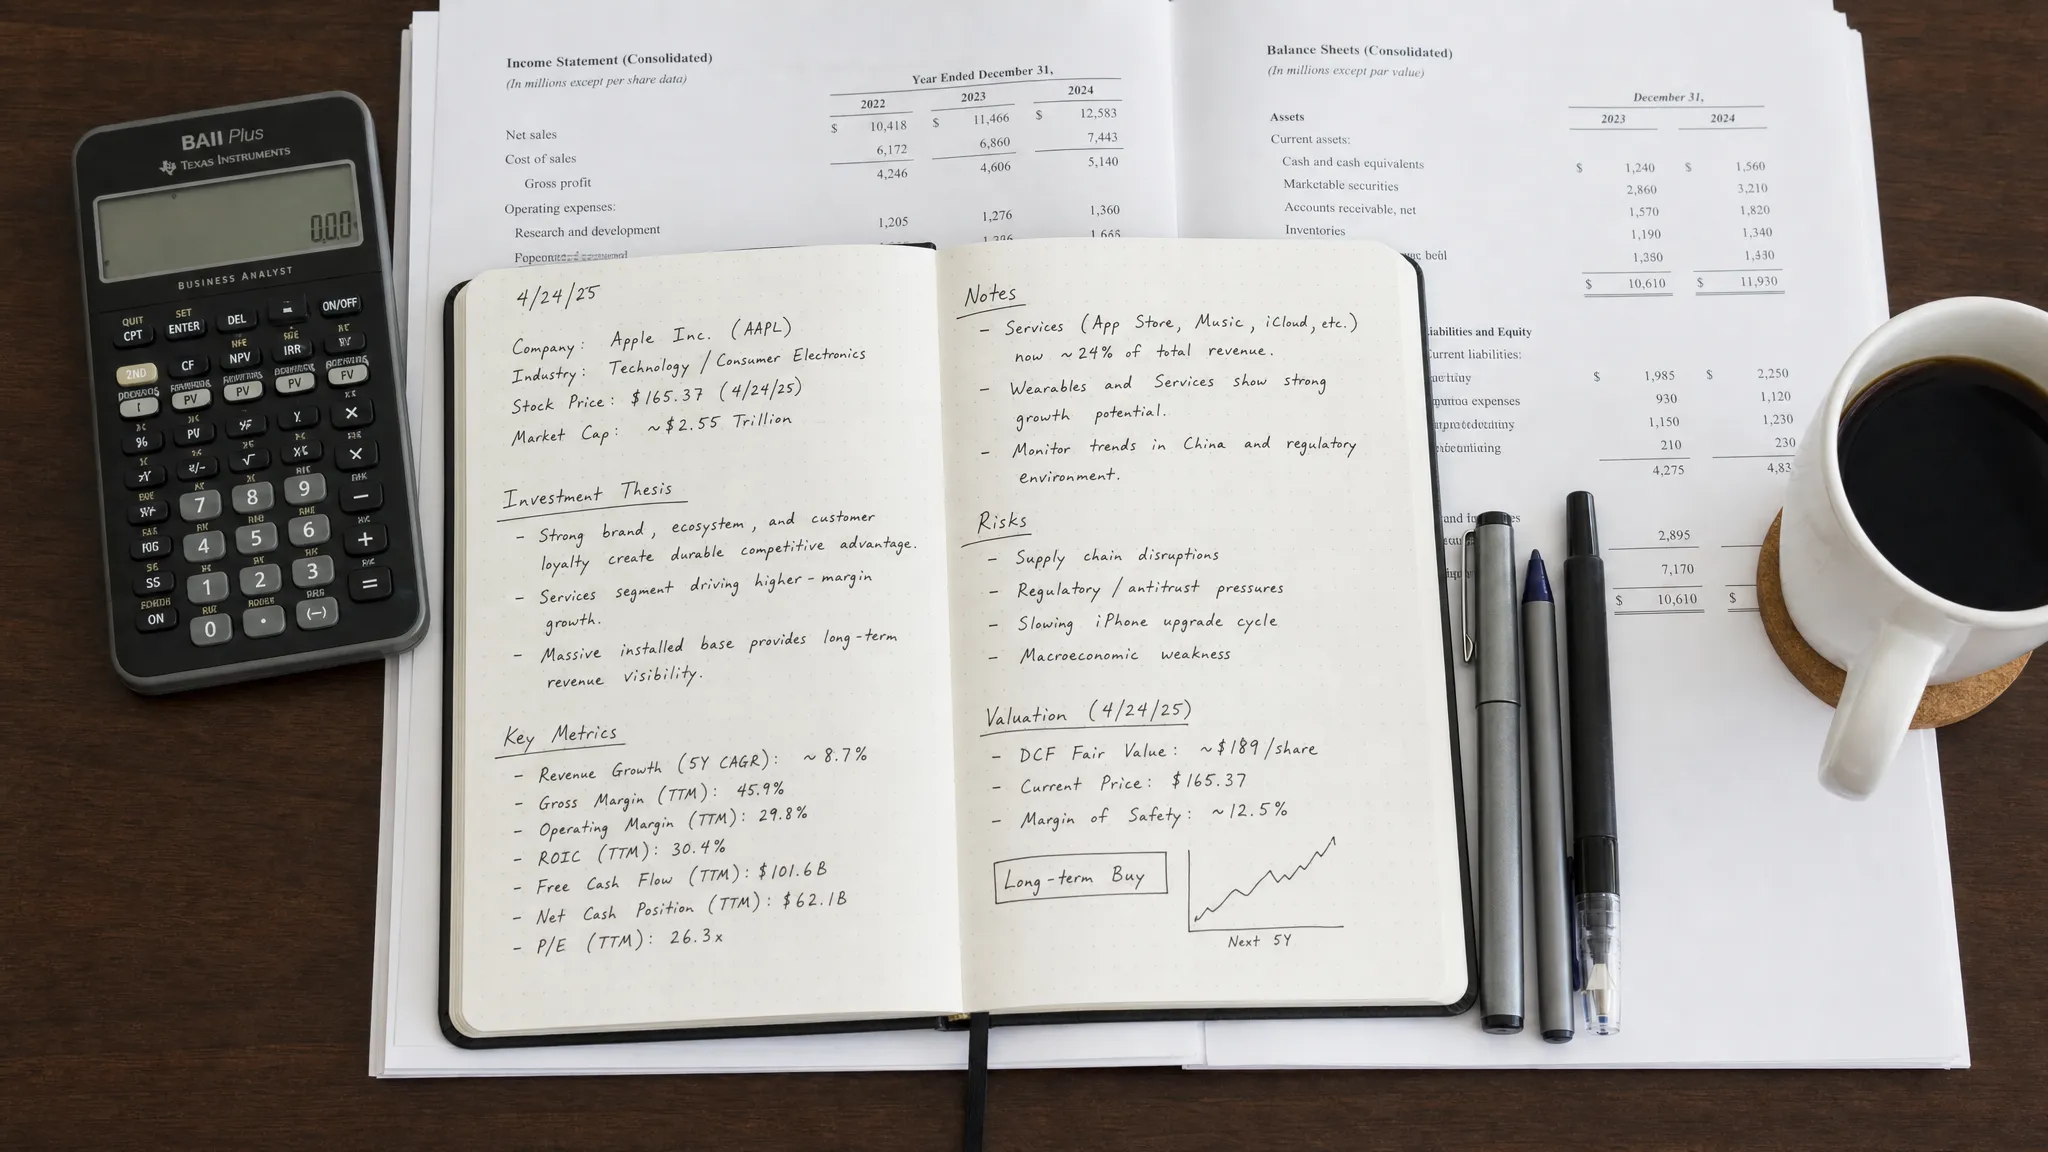 Income Statement (Consolidated)
(In millions except per share data)
Year Ended December 31,
2022 2023 2024
Net sales $ 10,418 $ 11,466 $ 12,583
Cost of sales 6,172 6,860 7,443
Gross profit 4,246 4,606 5,140
Operating expenses:
Research and development 1,205 1,276 1,360
Balance Sheets (Consolidated)
(In millions except par value)
December 31,
2023 2024
Assets
Current assets:
Cash and cash equivalents $ 1,240 $ 1,560
Marketable securities 2,860 3,210
Accounts receivable, net 1,570 1,820
Inventories 1,190 1,340
1,380 1,430
$ 10,610 $ 11,930
iabilities and Equity
Current liabilities:
$ 1,985 $ 2,250
expenses 930 1,120
1,150 1,230
210 230
4,275 4,83
2,895
7,170
$ 10,610 $
BAII Plus
TEXAS INSTRUMENTS
BUSINESS ANALYST
QUIT SET
CPT ENTER DEL ON/OFF
2ND CF NPV IRR
PV PV PV FV
% PV
7 8 9
4 5 6 +
SS 1 2 3 =
ON 0 . (–)
4/24/25
Company: Apple Inc. (AAPL)
Industry: Technology / Consumer Electronics
Stock Price: $165.37 (4/24/25)
Market Cap: ~$2.55 Trillion
Investment Thesis
- Strong brand, ecosystem, and customer
loyalty create durable competitive advantage.
- Services segment driving higher-margin
growth.
- Massive installed base provides long-term
revenue visibility.
Key Metrics
- Revenue Growth (5Y CAGR): ~8.7%
- Gross Margin (TTM): 45.9%
- Operating Margin (TTM): 29.8%
- ROIC (TTM): 30.4%
- Free Cash Flow (TTM): $101.6B
- Net Cash Position (TTM): $62.1B
- P/E (TTM): 26.3x
Notes
- Services (App Store, Music, iCloud, etc.)
now ~24% of total revenue.
- Wearables and Services show strong
growth potential.
- Monitor trends in China and regulatory
environment.
Risks
- Supply chain disruptions
- Regulatory / antitrust pressures
- Slowing iPhone upgrade cycle
- Macroeconomic weakness
Valuation (4/24/25)
- DCF Fair Value: ~$189/share
- Current Price: $165.37
- Margin of Safety: ~12.5%
Long-term Buy
Next 5Y